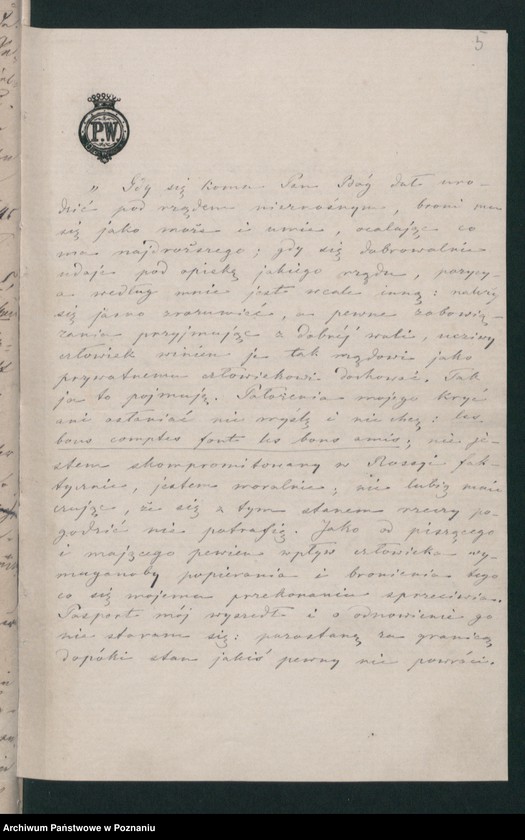 5
P.W.
„ Gdy się komu Pan Bóg dał uro-
dzić pod rządem nieznośnym, broni mu
się jako może i umie, ocalając co
ma najdroższego; gdy się dobrowolnie
udaje pod opiekę jakiego rządu, pozycy-
a według mnie jest wcale inną: należy
się jasno zrozumieć, a pewne zobowią-
zania przyjmując z dobréj woli, uczciwy
człowiek winien je tak rządowi jako
prywatnemu człowiekowi dochować. Tak
ja to pojmuję. Położenia mojego kryć
ani osłaniać nie myślę i nie chcę: les
bons comptes font les bons amis; nie je-
stem skompromitowany w Rossyi fak-
tycznie, jestem moralnie; nie lubią mnie
czując, że się z tym stanem rzeczy po-
godzić nie potrafię. Jako od piszącego
i mającego pewien wpływ człowieka wy-
maganoby popierania i bronienia tego
co się mojemu przekonaniu sprzeciwia.
Pasport mój wyszedł i o odnowienie go
nie staram się: pozostanę za granicą
dopóki stan jakiś pewny nie powróci.
Archiwum Państwowe w Poznaniu